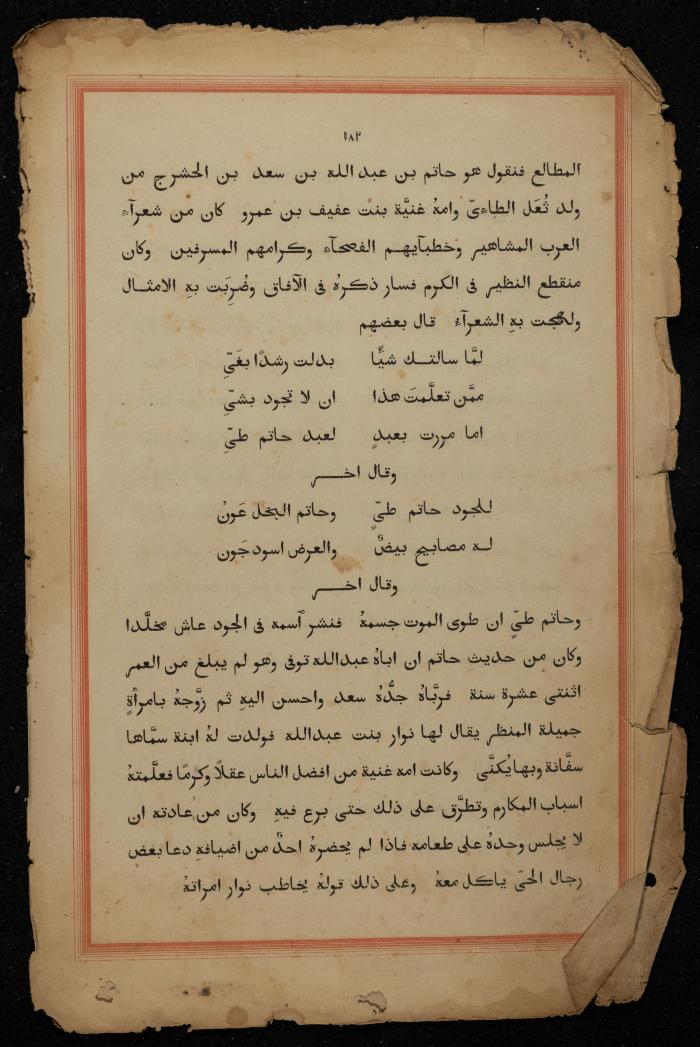 ١٨٢
المطالع فنقول هو حاتم بن عبد الله بن سعد بن الحشرج من
ولد ثُعَل الطاءيّ وامهُ غنيَّة بنت عفيف بن عمرو كان من شعرآء
العرب المشاهير وخطبآيهم الفصحآء وكرامهم المسرفين وكان
منقطع النظير فى الكرم فسار ذكرهُ فى الآفاق وضُرِبَت بهِ الامثال
ولهجت بهِ الشعرآء قال بعضهم
لمَّا سالتك شيًّا بدلت رشدًا بغَىِّ
ممَّن تعلَّمتَ هذا ان لا تجود بشىِّ
اما مررت بعبدٍ لعبد حاتم طىِّ
وقال اخر
للجود حاتم طىٍّ وحاتم البخل عَونُ
له مصابيح بيضٌ والعرض اسود جَون
وقال اخر
وحاتم طىٍّ ان طوى الموت جسمهُ فنشر ٱسمه فى الجود عاش مخلَّدا
وكان من حديث حاتم ان اباهُ عبدالله توفى وهو لم يبلغ من العمر
اثنتى عشرة سنة فربَّاهُ جدُّهُ سعد واحسن اليهِ ثم زوَّجهُ بامرأةٍ
جميلة المنظر يقال لها نوار بنت عبدالله فولدت لهُ ابنة سمَّاها
سفَّانة وبها يُكنَّى وكانت امه غنية من افضل الناس عقلاً وكرمًا فعلَّمتهُ
اسباب المكارم وتطرَّق على ذلك حتى برع فيهِ وكان من عادته ان
لا يجلس وحدهُ على طعامه فاذا لم يحضرهُ احدٌ من اضيافهِ دعا بعض
رجال الحىّ ياكل معهُ وعلى ذلك قولهُ يخاطب نوار امراتهُ